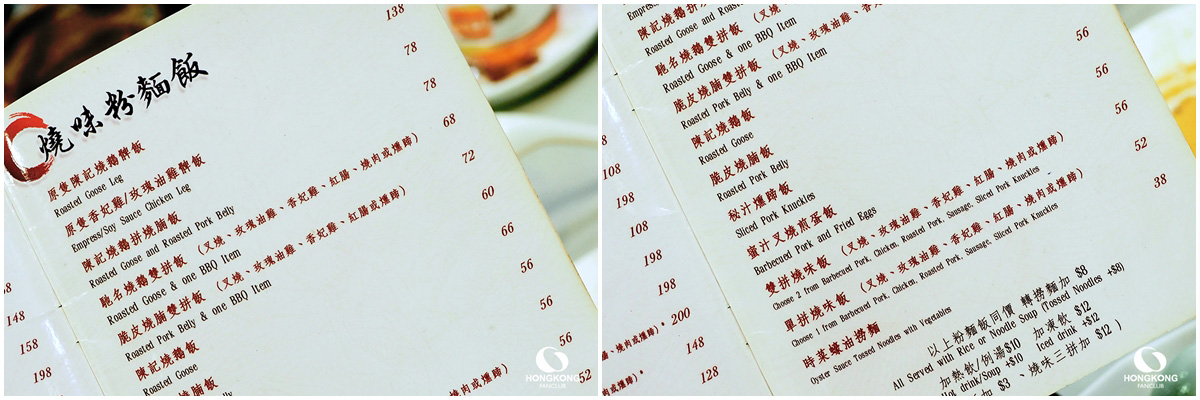 138
78
78
68
72
60
66
56
56
56
52
燒味粉麵飯
原隻陳記燒鵝髀飯
Roasted Goose Leg
原隻香妃雞/玫瑰油雞髀飯
Empress/Soy Sauce Chicken Leg
陳記燒鵝拼燒腩飯
Roasted Goose and Roasted Pork Belly
馳名燒鵝雙拼飯 (叉燒、玫瑰油雞、香妃雞、紅腸、燒肉或燻蹄)
Roasted Goose & one BBQ Item
脆皮燒腩雙拼飯 (叉燒、玫瑰油雞、香妃雞、紅腸或燻蹄)
Roasted Pork Belly & one BBQ Item
陳記燒鵝飯
Roasted Goose
脆皮燒腩飯
Roasted Pork Belly
148
158
198
燒肉或燻蹄)
HONGKONG
FANCLUB
陳記燒鵝拼
Roasted Goose and Roasted
馳名燒鵝雙拼飯 (叉燒、玫瑰油雞、香
Roasted Goose & one BBQ Item
脆皮燒腩雙拼飯 (叉燒、玫瑰油雞、香
Roasted Pork Belly & one BBQ Item
陳記燒鵝飯
Roasted Goose
脆皮燒腩飯
Roasted Pork Belly
秘汁燻蹄飯
Sliced Pork Knuckles
蜜汁叉燒煎蛋飯
Barbecued Pork and Fried Eggs
雙拼燒味飯 (叉燒、玫瑰油雞、香妃雞、紅腸、燒肉或燻蹄)
Choose 2 from Barbecued Pork, Chicken, Roasted Pork, Sausage, Sliced Pork Knuckles
單拼燒味飯 (叉燒、玫瑰油雞、香妃雞、紅腸、燒肉或燻蹄)
Choose 1 from Barbecued Pork, Chicken, Roasted Pork, Sausage, Sliced Pork Knuckles
時菜蠔油撈麵
Oyster Sauce Tossed Noodles with Vegetables
56
56
56
52
38
108
198
108
198
198
、燒肉或燻蹄)。200
或燻蹄)。
128
以上粉麵飯同價 轉撈麵加 $8
All Served with Rice or Noodle Soup (Tossed Noodles +$8)
加熱飲/例湯$10 加凍飲 $12
Hot drink/Soup +$10 Iced drink +$12
$3 、燒味三拼加 $12 )
HONGKONG
FANCLUB